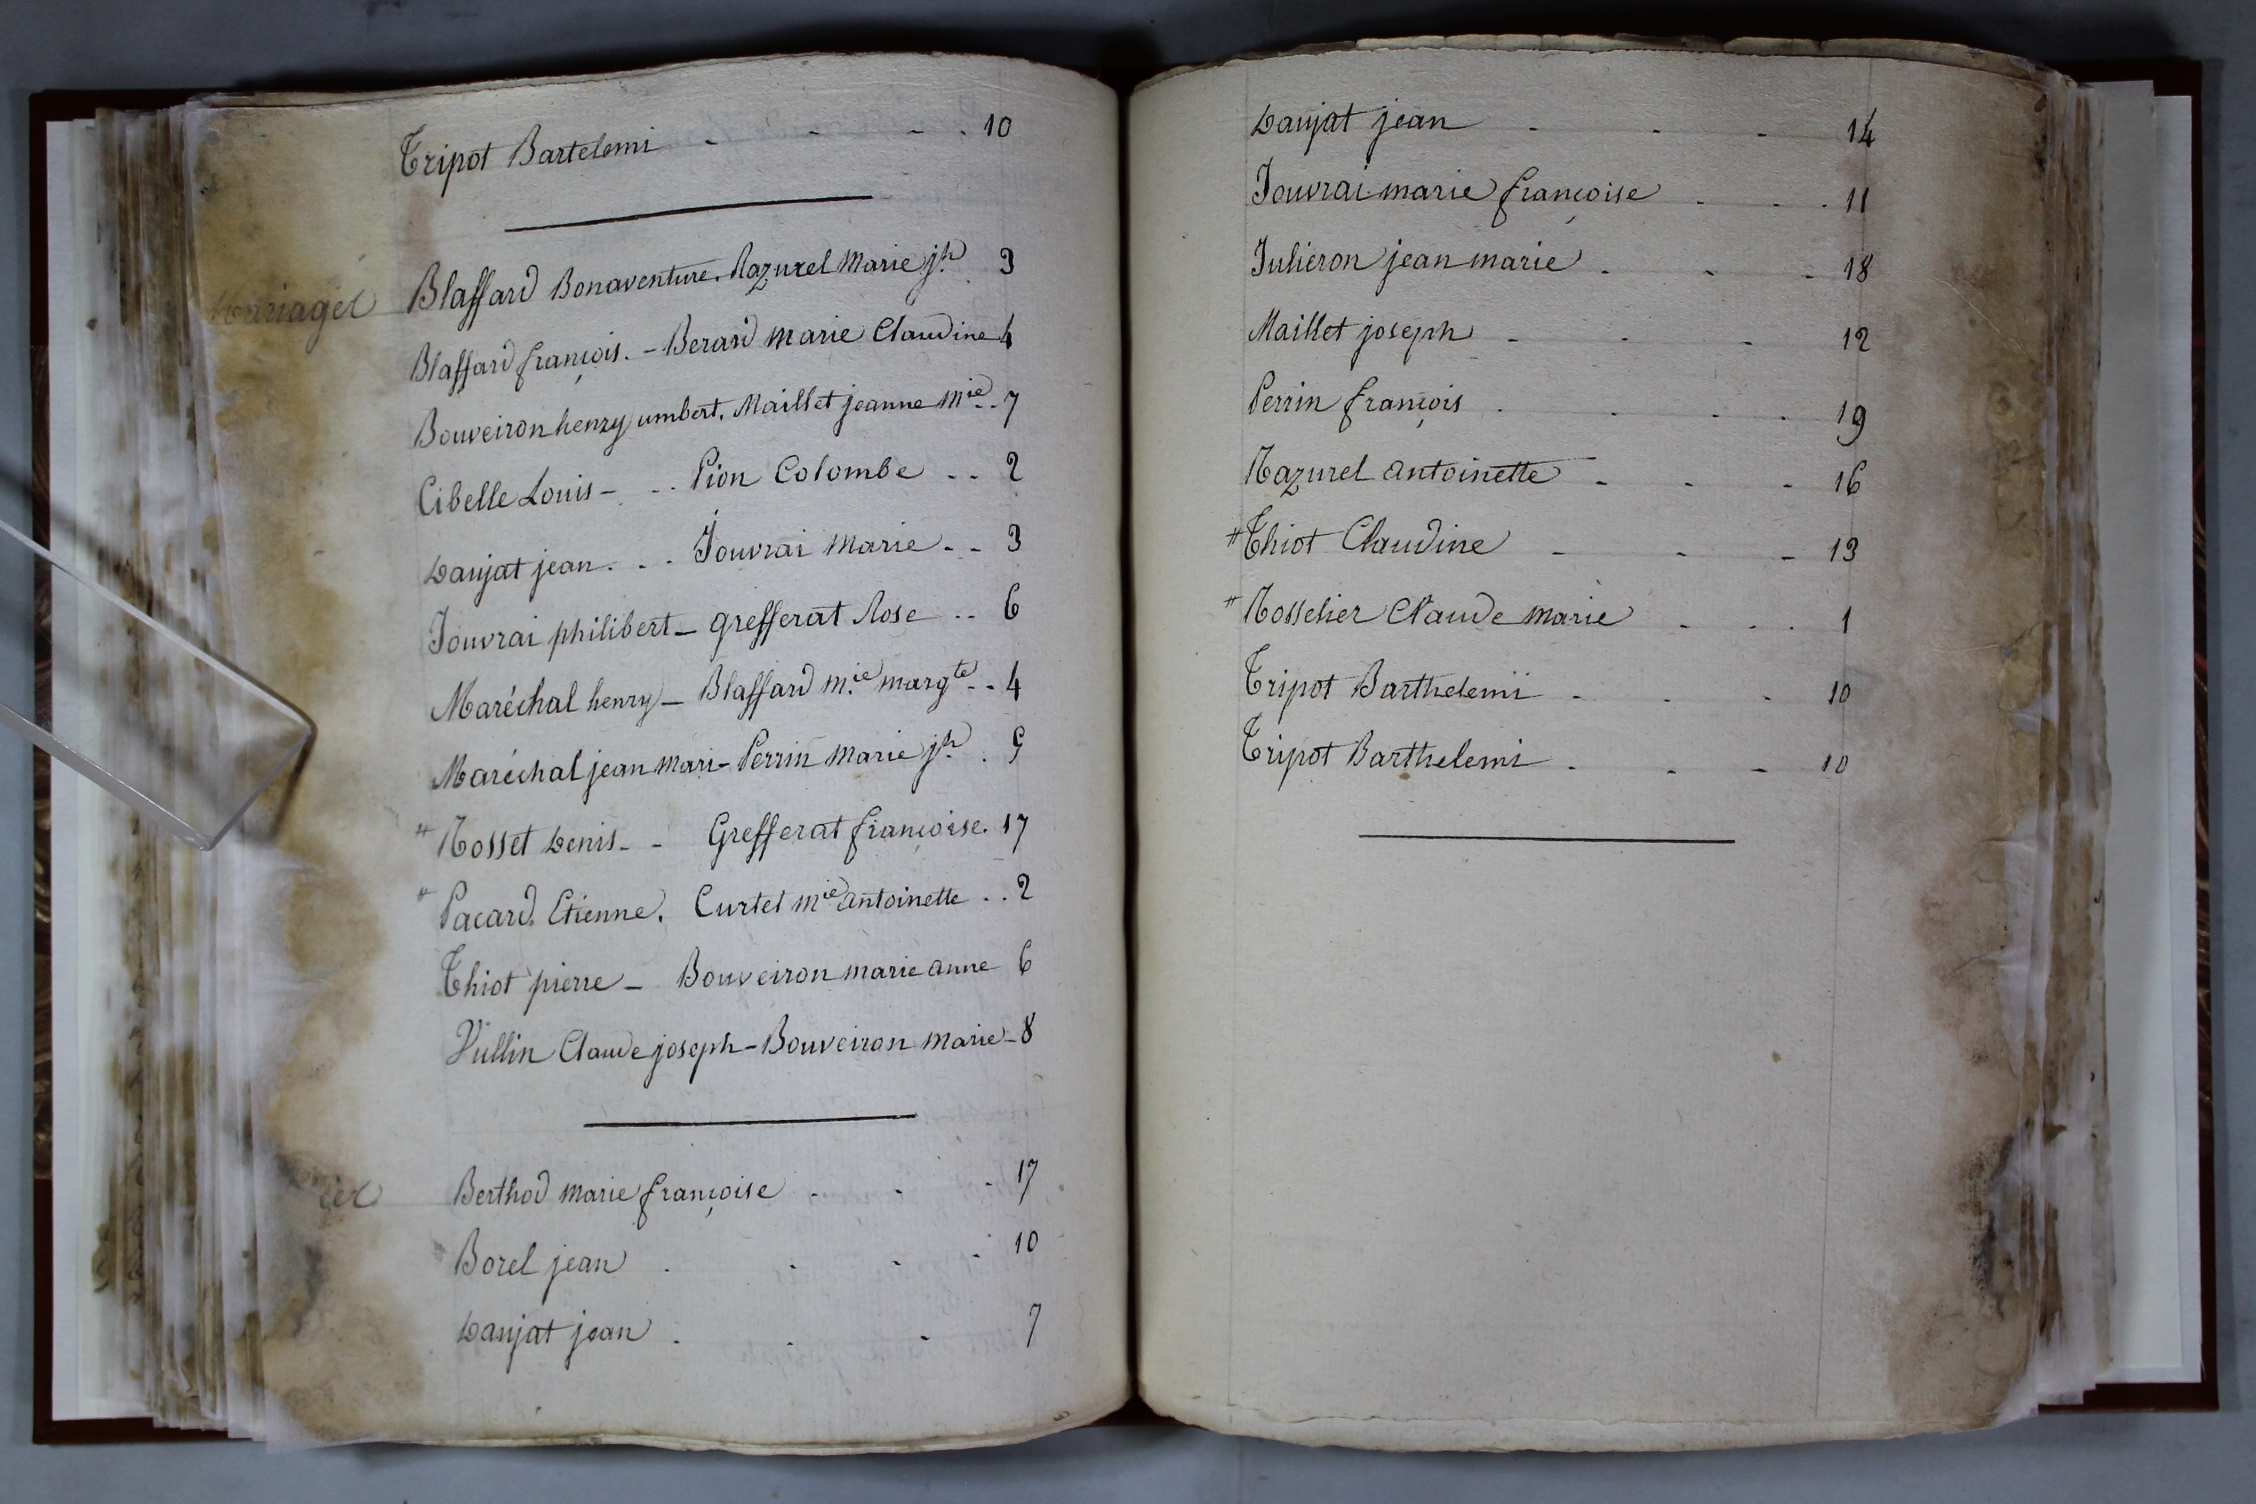 Tripot Bartelemi - - - . 10
Mariages Blaffard Bonaventure. Razurel Marie jh. 3
Blaffard françois. - Berard marie Claudine 4
Bouveiron henry umbert. Maillet jeanne mie. . 7
Cibelle Louis - - . . Pion Colombe . . 2
Danjat jean . . . Jouvrai Marie - - 3
Jouvrai philibert - grefferat Rose . . 6
Maréchal henry - Blaffard m.ie margte. . 4
Maréchal jean mari - Perrin Marie jh. . 9
# Rosset Denis - - Grefferat françoise. 17
# Pacard Etienne. Curtet mie antoinette . . 2
Thiot pierre - Bouveiron marie anne 6
Vullin Claude joseph - Bouveiron marie - 8
Berthod marie françoise . . . 17
Borel jean . . . . 10
Danjat jean . . . 7
Danjat jean - - - 14
Jouvrai marie françoise . . . 11
Julieron jean marie . . . 18
Maillet joseph - - - 12
Perrin françois . . . . 19
Razurel antoinette - - - 16
# Thiot Claudine - - - 13
# Rosselier Claude marie . . . 1
Tripot Barthelemi . . . 10
Tripot Barthelemi . . - 10